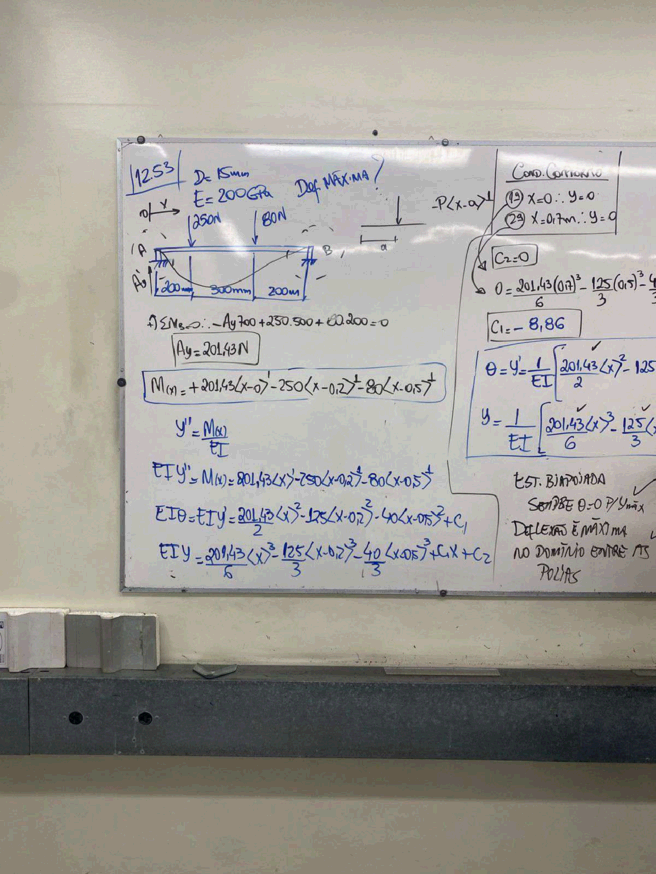 12.53
D= 15mm
E= 200GPa
DEF. MÁXIMA?
250N
80N
A
B
Ay
200mm
300mm
200m
-P<x-a>¹
a
-Ay700+250.500+80.200=0
Ay=201,43N
M(x)=+201,43<x-0>¹-250<x-0,2>¹-80<x-0,5>¹
y''=M(x)/EI
EIy''=M(x)=201,43<x>¹-250<x-0,2>¹-80<x-0,5>¹
EIθ=EIy'=201,43/2<x>²-125<x-0,2>²-40<x-0,5>²+C₁
EIy=201,43/6<x>³-125/3<x-0,2>³-40/3<x-0,5>³+C₁x+C₂
COND. CONTORNO
1ª) x=0∴y=0
2ª) x=0,7m∴y=0
C₂=0
0=201,43(0,7)³/6-125(0,5)³/3-4
C₁=-8,86
θ=y'=1/EI[201,43<x>²/2-125
y=1/EI[201,43<x>³/6-125<x/3
EST. BIAPOIADA
SEMPRE θ=0 P/ Ymáx
DEFLEXÃO É MÁXIMA
NO DOMÍNIO ENTRE AS
POLIAS